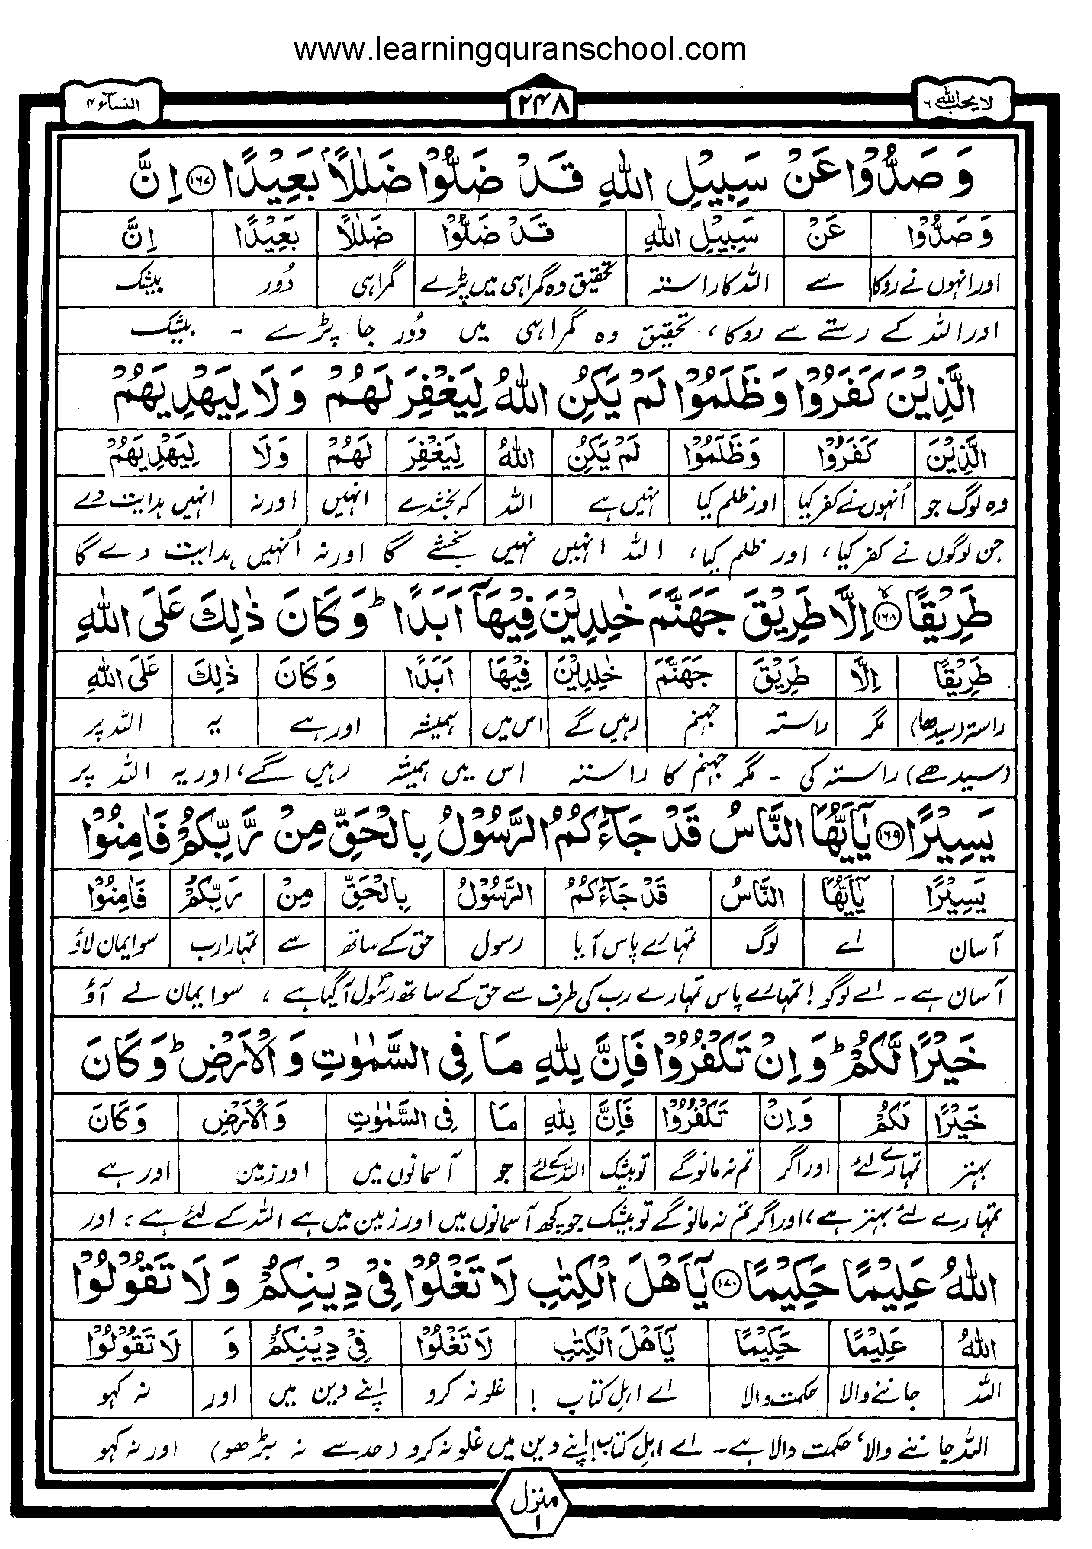 www.learningquranschool.com
لا یحب اللہ ٦ ۲۴۸ النسآء ۴
وَصَدُّوْا عَنْ سَبِيْلِ اللهِ قَدْ ضَلُّوْا ضَلٰلًاۢ بَعِيْدًا ﴿۱۶۷﴾ اِنَّ
وَصَدُّوْا عَنْ سَبِيْلِ اللهِ قَدْ ضَلُّوْا ضَلٰلًا بَعِيْدًا اِنَّ
اور انہوں نے روکا سے اللہ کا راستہ تحقیق وہ گمراہی میں پڑے گمراہی دُور بیشک
اور اللہ کے رستے سے روکا، تحقیق وہ گمراہی میں دُور جا پڑے ۔ بیشک
الَّذِيْنَ كَفَرُوْا وَظَلَمُوْا لَمْ يَكُنِ اللهُ لِيَغْفِرَ لَهُمْ وَلَا لِيَهْدِيَهُمْ
الَّذِيْنَ كَفَرُوْا وَظَلَمُوْا لَمْ يَكُنِ اللهُ لِيَغْفِرَ لَهُمْ وَلَا لِيَهْدِيَهُمْ
وہ لوگ جو اُنہوں نے کفر کیا اور ظلم کیا نہیں ہے اللہ کہ بخشدے انہیں اور نہ انہیں ہدایت دے
جن لوگوں نے کفر کیا، اور ظلم کیا، اللہ انہیں نہیں بخشے گا اور نہ اُنہیں ہدایت دے گا
طَرِيْقًا ﴿۱۶۸﴾ اِلَّا طَرِيْقَ جَهَنَّمَ خٰلِدِيْنَ فِيْهَآ اَبَدًا ؕ وَكَانَ ذٰلِكَ عَلَى اللهِ
طَرِيْقًا اِلَّا طَرِيْقَ جَهَنَّمَ خٰلِدِيْنَ فِيْهَا اَبَدًا وَكَانَ ذٰلِكَ عَلَى اللهِ
راستہ (سیدھا) مگر راستہ جہنم رہیں گے اس میں ہمیشہ اور ہے یہ اللہ پر
(سیدھے) راستہ کی ۔ مگر جہنم کا راستہ اس میں ہمیشہ رہیں گے، اور یہ اللہ پر
يَسِيْرًا ﴿۱۶۹﴾ يٰٓاَيُّهَا النَّاسُ قَدْ جَآءَكُمُ الرَّسُوْلُ بِالْحَقِّ مِنْ رَّبِّكُمْ فَاٰمِنُوْا
يَسِيْرًا يٰٓاَيُّهَا النَّاسُ قَدْ جَآءَكُمُ الرَّسُوْلُ بِالْحَقِّ مِنْ رَبِّكُمْ فَاٰمِنُوْا
آسان اے لوگ تمہارے پاس آیا رسول حق کے ساتھ سے تمہارا رب سو ایمان لاؤ
آسان ہے ۔ اے لوگو! تمہارے پاس تمہارے رب کی طرف سے حق کے ساتھ رسولؐ آگیا ہے، سو ایمان لے آؤ
خَيْرًا لَّكُمْ ؕ وَاِنْ تَكْفُرُوْا فَاِنَّ لِلّٰهِ مَا فِي السَّمٰوٰتِ وَالْاَرْضِ ؕ وَكَانَ
خَيْرًا لَكُمْ وَاِنْ تَكْفُرُوْا فَاِنَّ لِلّٰهِ مَا فِي السَّمٰوٰتِ وَالْاَرْضِ وَكَانَ
بہتر تمہارے لئے اور اگر تم نہ مانو گے تو بیشک اللہ کے لئے جو آسمانوں میں اور زمین اور ہے
تمہارے لئے بہتر ہے، اور اگر تم نہ مانو گے تو بیشک جو کچھ آسمانوں میں اور زمین میں ہے اللہ کے لئے ہے، اور
اللهُ عَلِيْمًا حَكِيْمًا ﴿۱۷۰﴾ يٰٓاَهْلَ الْكِتٰبِ لَا تَغْلُوْا فِيْ دِيْنِكُمْ وَلَا تَقُوْلُوْا
اللهُ عَلِيْمًا حَكِيْمًا يٰٓاَهْلَ الْكِتٰبِ لَا تَغْلُوْا فِيْ دِيْنِكُمْ وَ لَا تَقُوْلُوْا
اللہ جاننے والا حکمت والا اے اہل کتاب ! غلو نہ کرو اپنے دین میں اور نہ کہو
اللہ جاننے والا، حکمت والا ہے ۔ اے اہل کتاب! اپنے دین میں غلو نہ کرو (حد سے نہ بڑھو) اور نہ کہو
منزل ۱